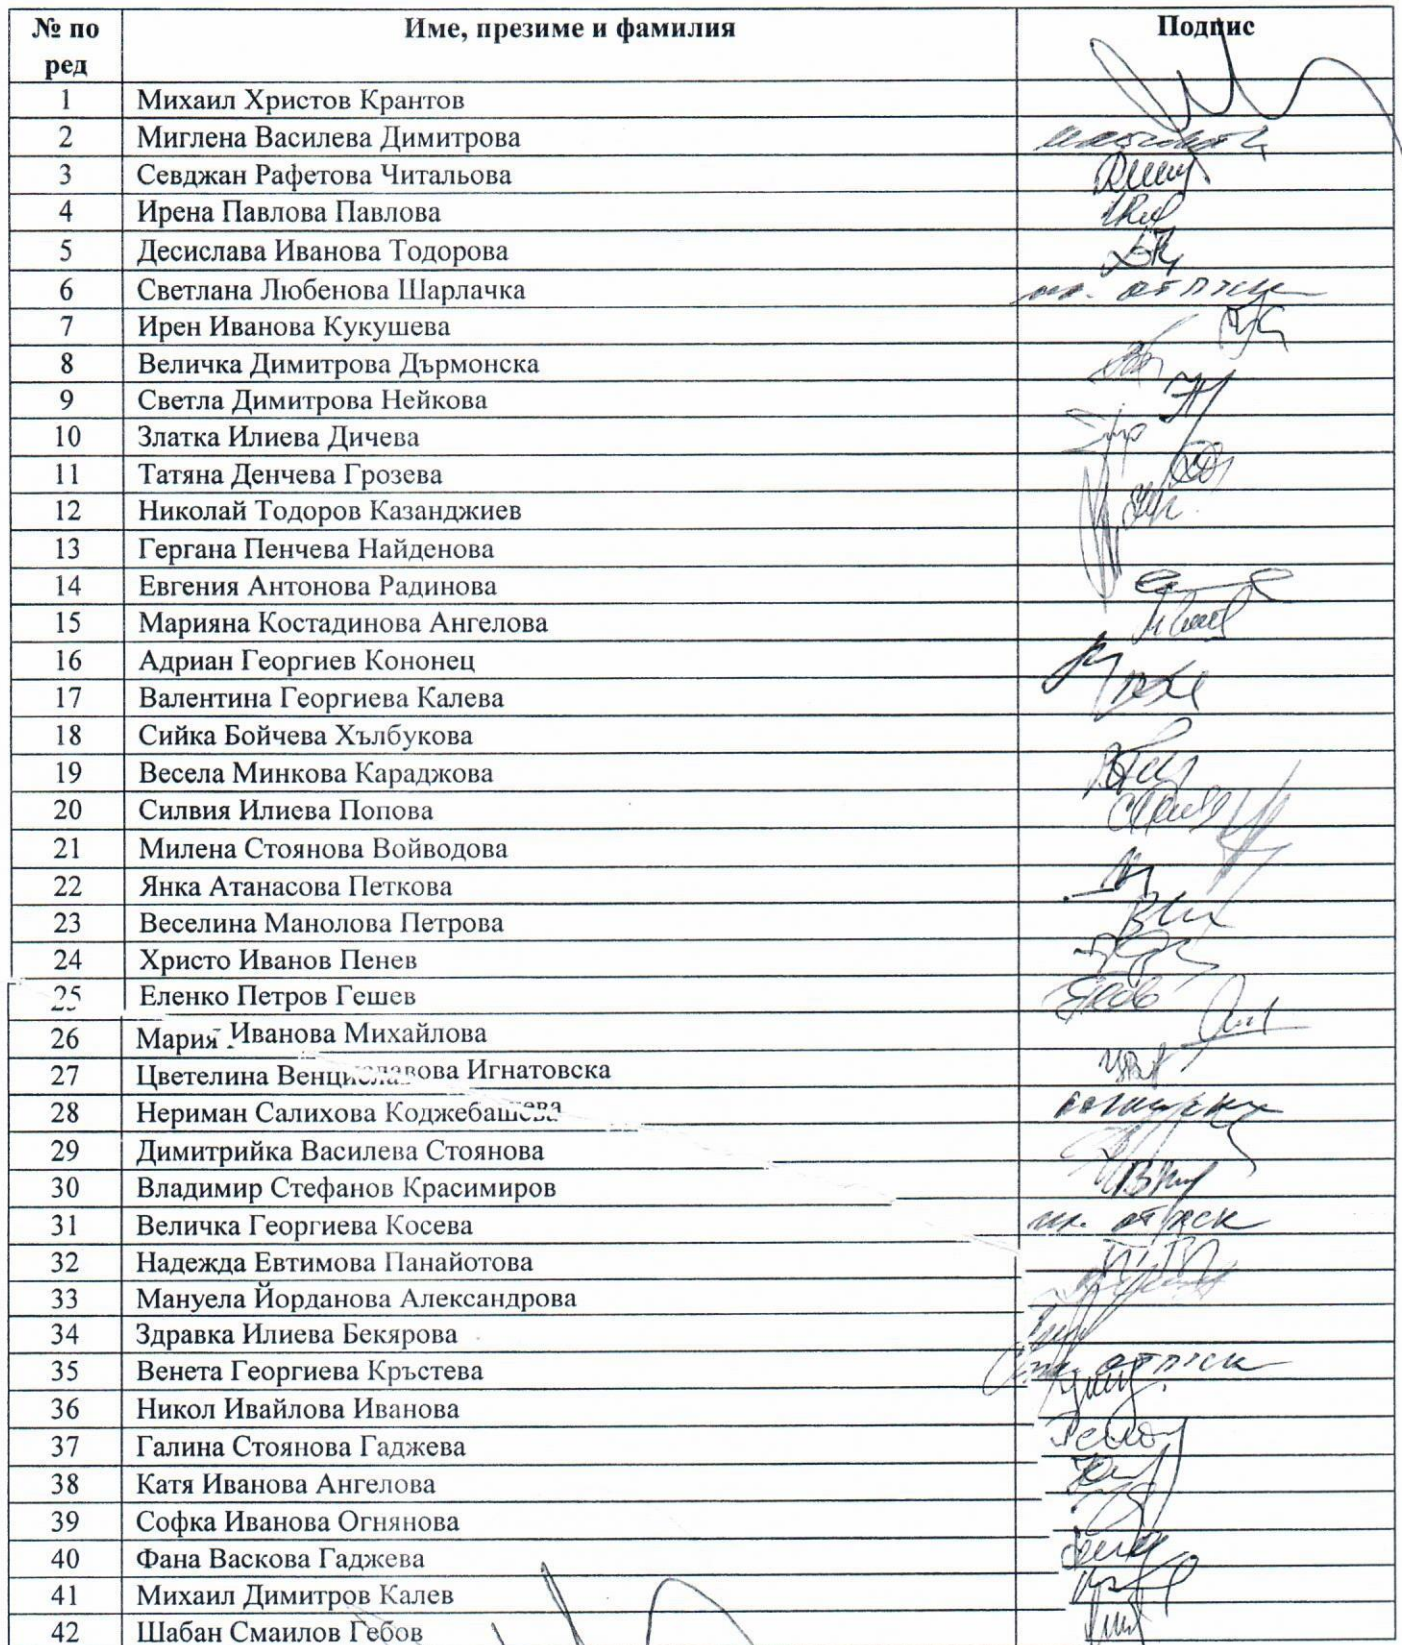 № по ред Име, презиме и фамилия Подпис
1 Михаил Христов Крантов
2 Миглена Василева Димитрова
3 Севджан Рафетова Читальова
4 Ирена Павлова Павлова
5 Десислава Иванова Тодорова
6 Светлана Любенова Шарлачка
7 Ирен Иванова Кукушева
8 Величка Димитрова Дърмонска
9 Светла Димитрова Нейкова
10 Златка Илиева Дичева
11 Татяна Денчева Грозева
12 Николай Тодоров Казанджиев
13 Гергана Пенчева Найденова
14 Евгения Антонова Радинова
15 Марияна Костадинова Ангелова
16 Адриан Георгиев Кононец
17 Валентина Георгиева Калева
18 Сийка Бойчева Хълбукова
19 Весела Минкова Караджова
20 Силвия Илиева Попова
21 Милена Стоянова Войводова
22 Янка Атанасова Петкова
23 Веселина Манолова Петрова
24 Христо Иванов Пенев
25 Еленко Петров Гешев
26 Мария Иванова Михайлова
27 Цветелина Венциславова Игнатовска
28 Нериман Салихова Коджебашева
29 Димитрийка Василева Стоянова
30 Владимир Стефанов Красимиров
31 Величка Георгиева Косева
32 Надежда Евтимова Панайотова
33 Мануела Йорданова Александрова
34 Здравка Илиева Бекярова
35 Венета Георгиева Кръстева
36 Никол Ивайлова Иванова
37 Галина Стоянова Гаджева
38 Катя Иванова Ангелова
39 Софка Иванова Огнянова
40 Фана Васкова Гаджева
41 Михаил Димитров Калев
42 Шабан Смаилов Гебов